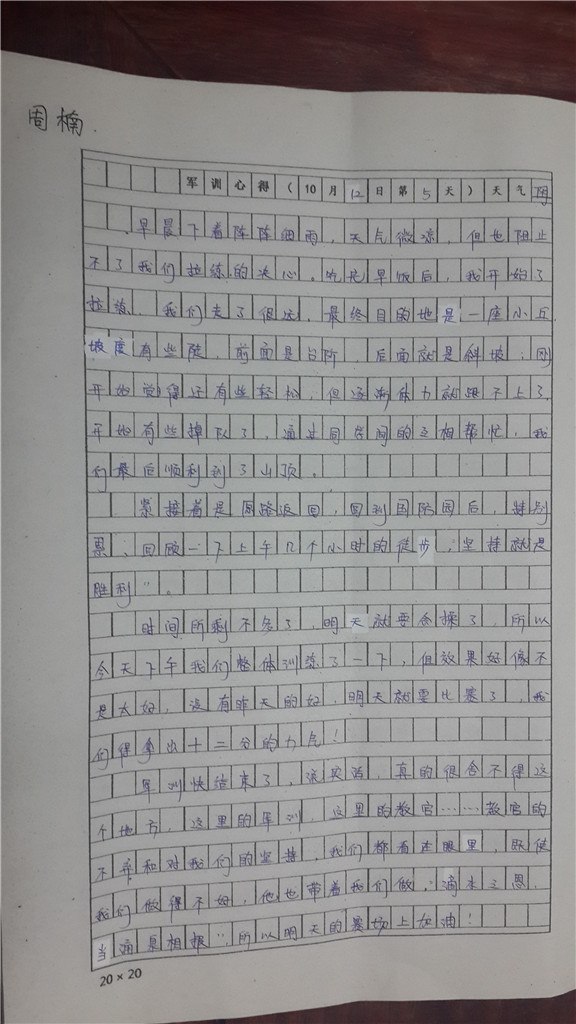 周楠
军训心得（10月12日第5天）天气阴
早晨下着阵阵细雨，天气微凉，但也阻止
不了我们拉练的决心。吃完早饭后，我开始了
拉练，我们走了很远，最终目的地是一座小丘
坡度有些陡，前面是台阶，后面就是斜坡，刚
开始觉得还有些轻松，但逐渐体力就跟不上了，
开始有些掉队了，通过同学间的互相帮忙，我
们最后顺利到了山顶。
紧接着是原路返回，回到国防园后，特别
累，回顾一下上午几个小时的徒步，“坚持就是
胜利”。
时间所剩不多了，明天就要会操了，所以
今天下午我们整体训练了一下，但效果好像不
是太好，没有昨天的好，明天就要比赛了，我
们得拿出十二分的力气！
军训快结束了，说实话，真的很舍不得这
个地方，这里的军训，这里的教官……教官的
不弃和对我们的坚持，我们都看在眼里，既使
我们做得不好，他也带着我们做，“滴水之恩，
当涌泉相报”，所以明天的赛场上加油！
20×20